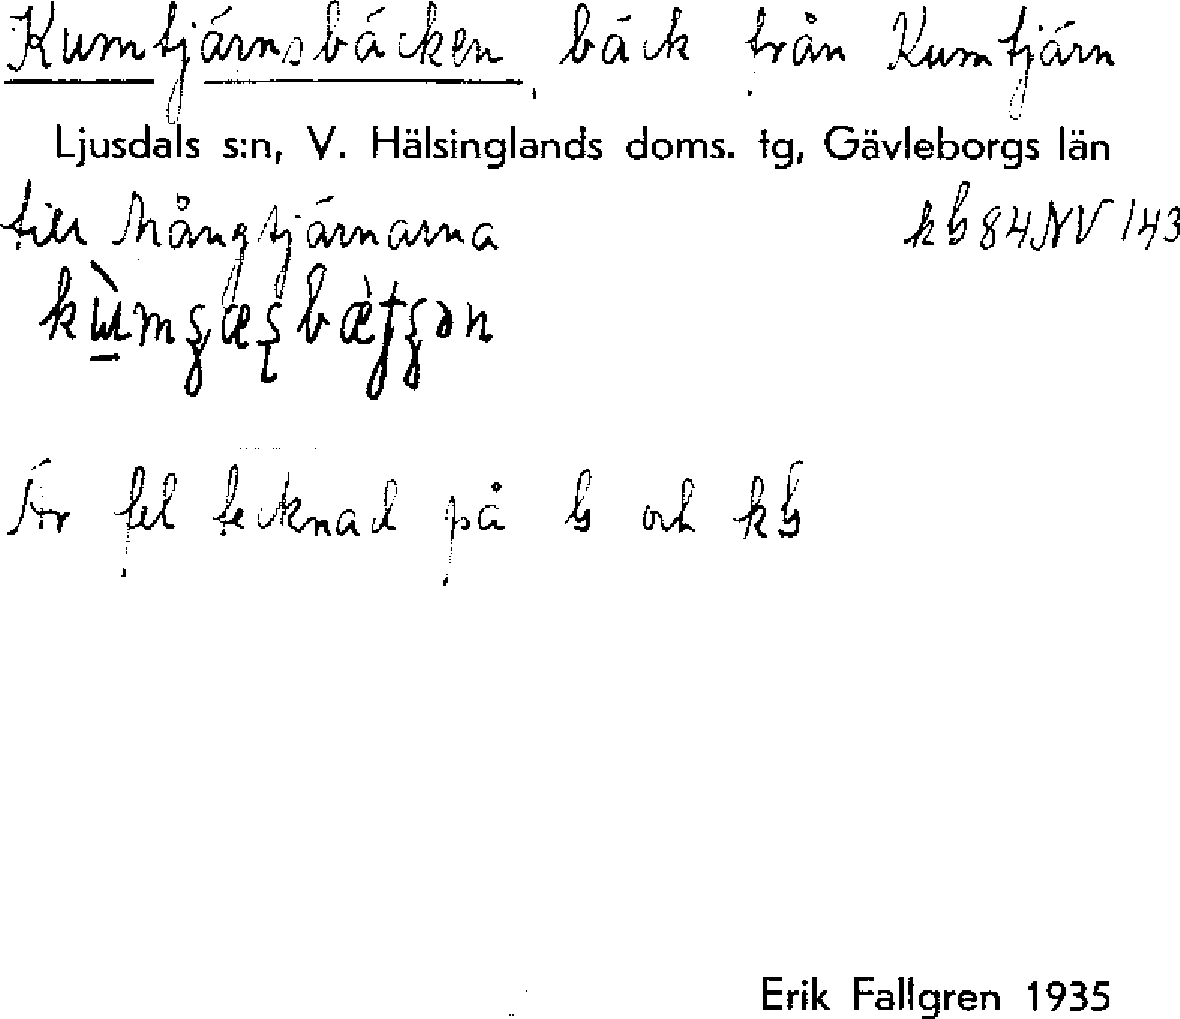 Kumtjärnsbäcken, bäck från Kumtjärn
Ljusdals s:n, V. Hälsinglands doms. tg, Gävleborgs län
till Mångtjärnarna kb 84 NV 143
Är fel tecknad på G och kb
Erik Fallgren 1935